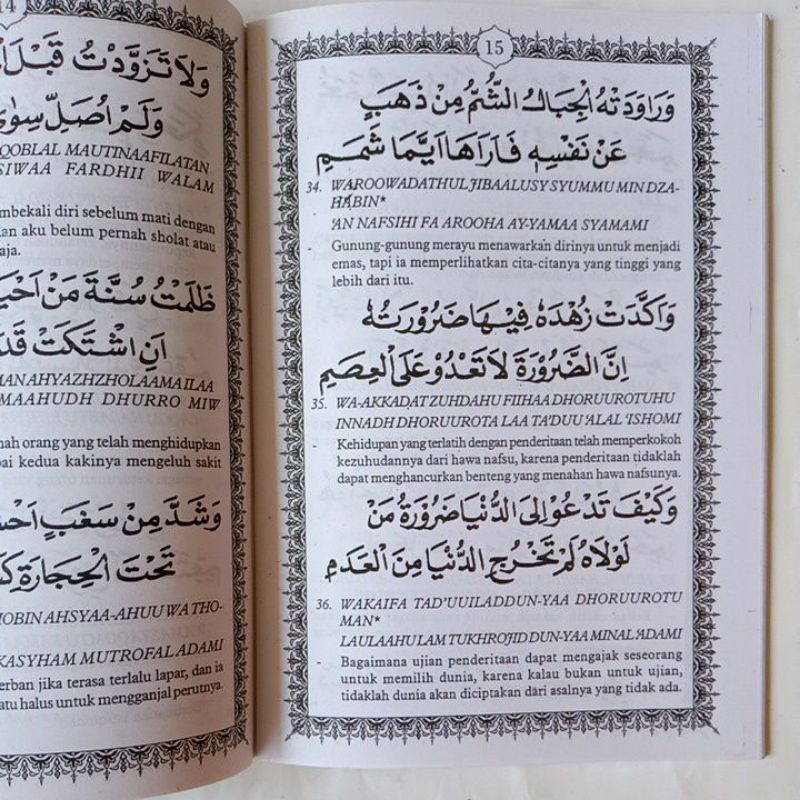 14
وَلَا تَزَوَّدْتُ قَبْلَ
وَلَمْ اُصَلِّ سِوٰى
QOBLAL MAUTINAAFILATAN
SIWAA FARDHII WALAM
mbekali diri sebelum mati dengan
an aku belum pernah sholat atau
aja.
ظَلَمْتُ سُنَّةَ مَنْ اَحْيَ
اَنِ اشْتَكَتْ قَدَ
MAN AHYAZHZHOLAAMA ILAA
MAAHUDH DHURRO MIW
nah orang yang telah menghidupkan
pai kedua kakinya mengeluh sakit
وَشَدَّ مِنْ سَغَبٍ اَحْشَ
تَحْتَ الْحِجَارَةِ كَ
HOBIN AHSYAA-AHUU WA THO-
KASYHAM MUTROFAL ADAMI
erban jika terasa terlalu lapar, dan ia
atu halus untuk mengganjal perutnya.
15
وَرَاوَدَتْهُ الْجِبَالُ الشُّمُّ مِنْ ذَهَبٍ
عَنْ نَفْسِهِ فَاَرَاهَا اَيَّمَا شَمَمِ
34. WAROOWADATHUL JIBAALUSY SYUMMU MIN DZA-
HABIN*
'AN NAFSIHI FA AROOHA AY-YAMAA SYAMAMI
- Gunung-gunung merayu menawarkan dirinya untuk menjadi
emas, tapi ia memperlihatkan cita-citanya yang tinggi yang
lebih dari itu.
وَاَكَّدَتْ زُهْدَهُ فِيْهَا ضَرُوْرَتُهُ
اِنَّ الضَّرُوْرَةَ لَا تَعْدُوْ عَلَى الْعِصَمِ
35. WA-AKKADAT ZUHDAHU FIIHAA DHORUUROTUHU
INNADH DHORUUROTA LAA TA'DUU 'ALAL 'ISHOMI
- Kehidupan yang terlatih dengan penderitaan telah memperkokoh
kezuhudannya dari hawa nafsu, karena penderitaan tidaklah
dapat menghancurkan benteng yang menahan hawa nafsunya.
وَكَيْفَ تَدْعُوْ اِلَى الدُّنْيَا ضَرُوْرَةُ مَنْ
لَوْلَاهُ لَمْ تُخْرَجِ الدُّنْيَا مِنَ الْعَدَمِ
36. WAKAIFA TAD'UUILADDUN-YAA DHORUUROTU
MAN*
LAULAAHU LAM TUKHROJID DUN-YAA MINAL 'ADAMI
- Bagaimana ujian penderitaan dapat mengajak seseorang
untuk memilih dunia, karena kalau bukan untuk ujian,
tidaklah dunia akan diciptakan dari asalnya yang tidak ada.